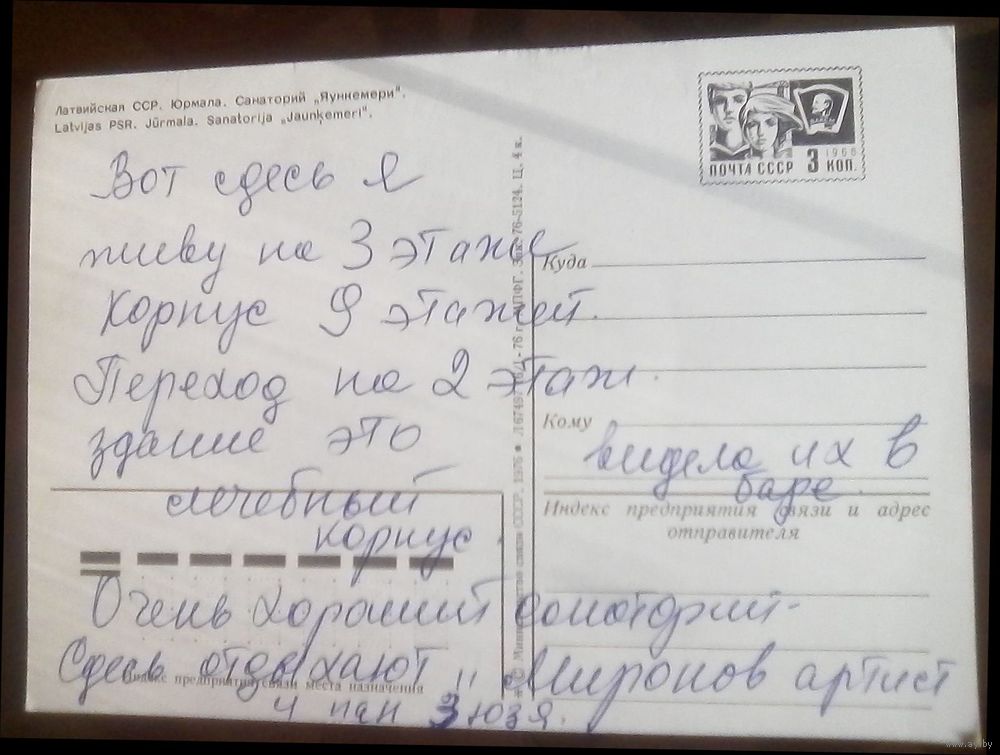 Латвийская ССР. Юрмала. Санаторий „Яункемери".
Latvijas PSR. Jūrmala. Sanatorija „Jaunķemeri".
ПОЧТА СССР 3 КОП.
1966
ВЛКСМ
Вот сдесь я
живу на 3 этаже
корпус 9 этажей.
Переход на 2 этаж.
здание это
лечебный
корпус.
Очень хороший санаторий.
Сдесь отдыхают „Миронов артист
и пан Зюзя.
Куда
Кому
видела их в
баре.
Индекс предприятия связи и адрес
отправителя
Индекс предприятия связи места назначения
связи СССР, 1976
76-5124. Ц. 4 к.
www.ay.by